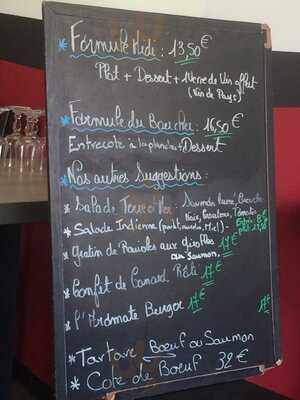 * Formule Midi : 13,50 €
Plat + Dessert + 1 Verre de Vin offert
(Vin de Pays)
* Formule du Boucher : 16,50 €
Entrecôte à la plancha + Dessert
* Nos autres Suggestions :
* Salade Terre & Mer : Saumon fumé,
Noix, Tomate
* Salade Indienne (poulet, Miel) :
* Gratin de Ravioles aux girolles
au Saumon, 17 €
* Confit de Canard Rôti 17 €
* L'Aromate Burger 17 €
17 €
* Tartare Boeuf ou Saumon
* Cote de Boeuf 32 €